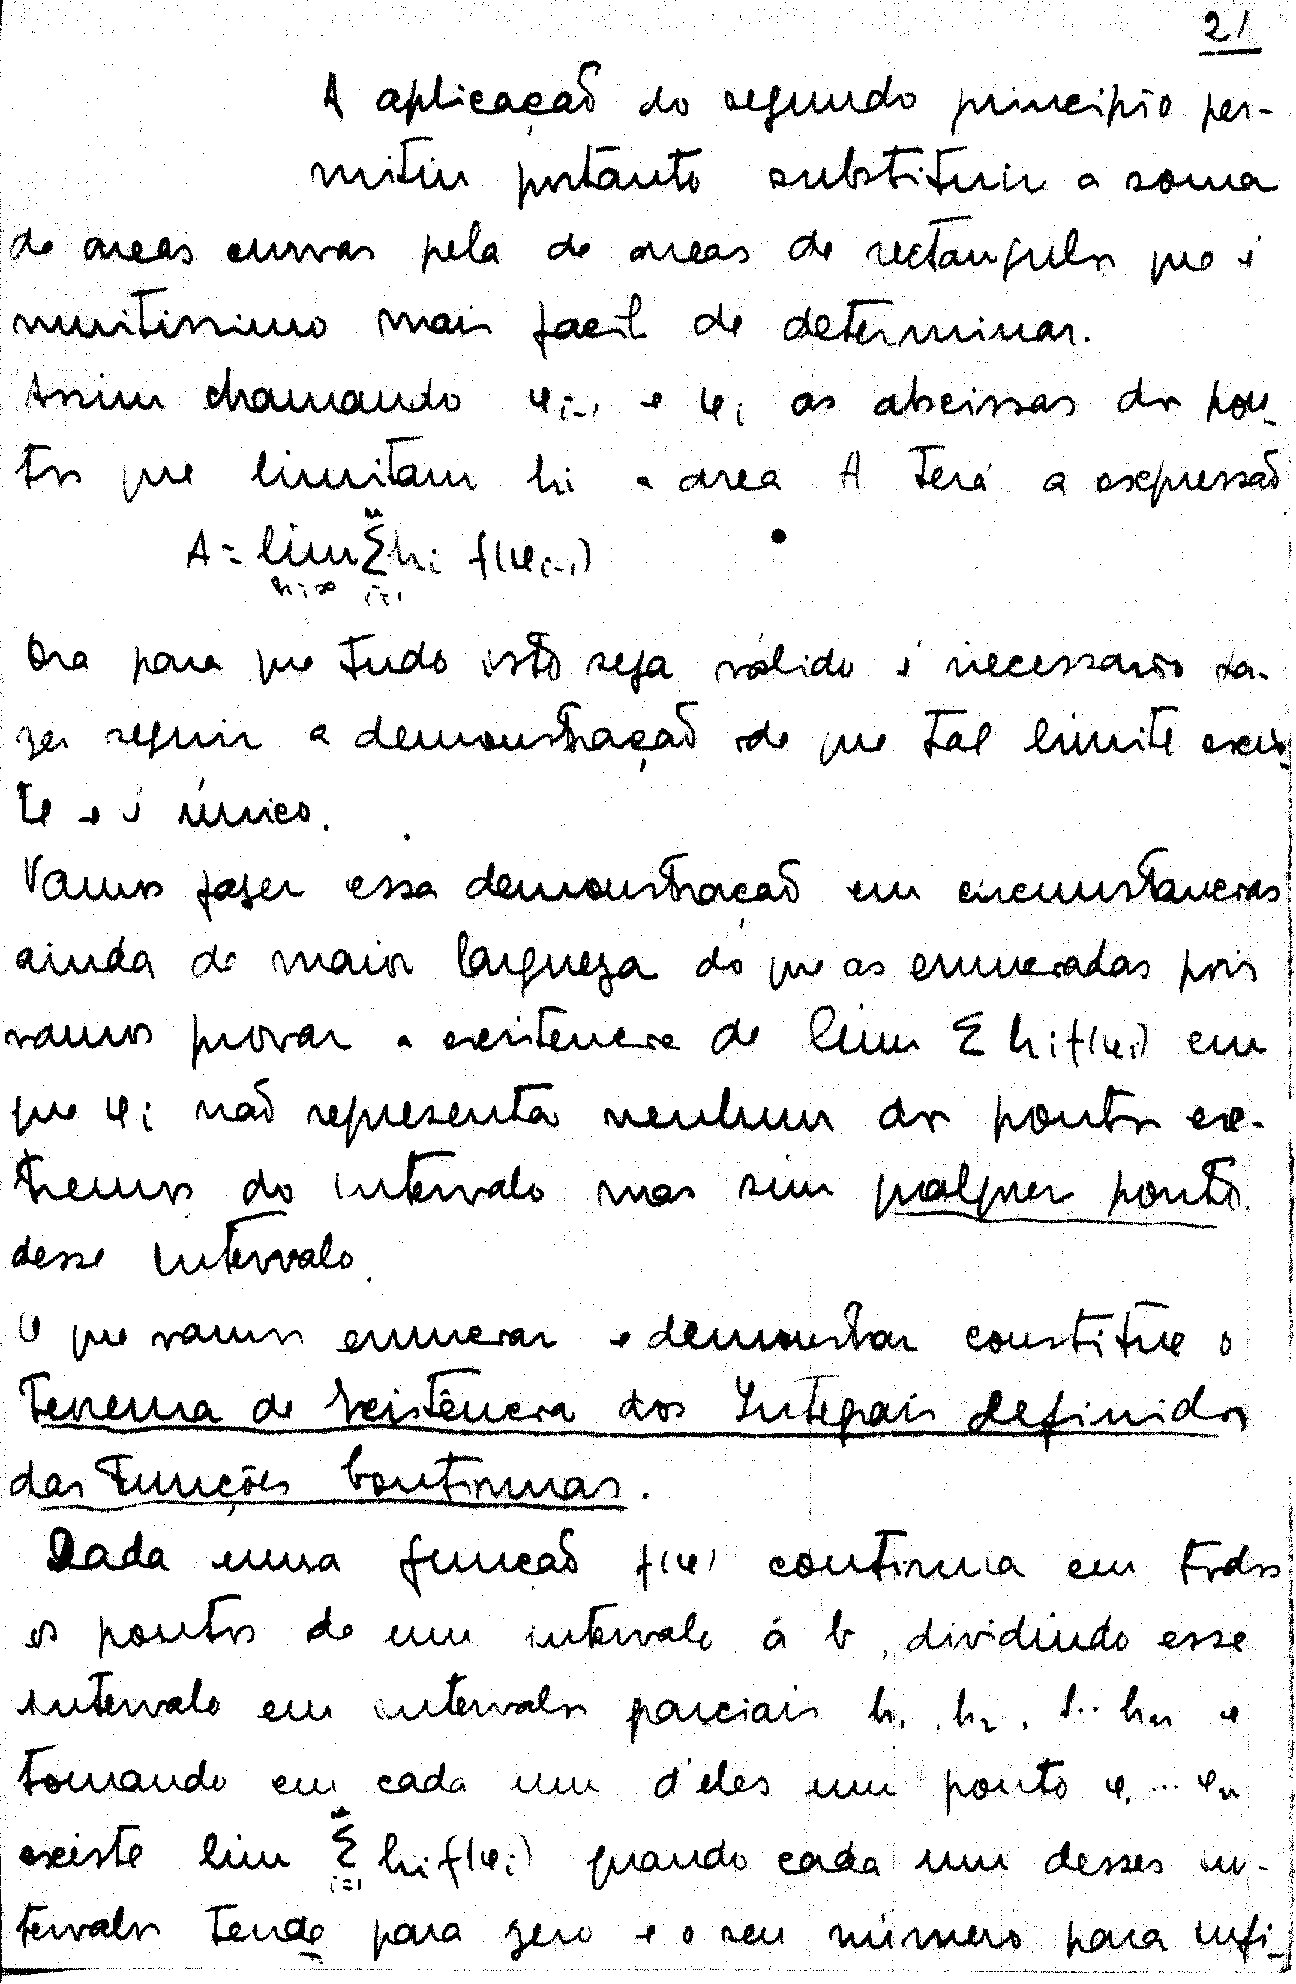 21
A aplicação do segundo principio per-
mitiu portanto substituir a soma
de areas curvas pela de areas de rectangulos que é
muitissimo mais facil de determinar.
Assim chamando x_{i-1} e x_i as abscissas dos pon-
tos que limitam h_i a area A terá a expressão
A = lim_{n=∞} Σ_{i=1}^{n} h_i f(x_{i-1})
Ora para que tudo isto seja válido é necessario fa-
zer seguir a demonstração de que tal limite exis-
te e é único.
Vamos fazer essa demonstração em circumstancias
ainda de maior largueza do que as enunciadas pois
vamos provar a existencia de lim Σ h_i f(x_i) em
que x_i não representa nenhum dos pontos ex-
tremos do intervalo mas sim qualquer ponto
desse intervalo.
O que vamos enunciar e demonstrar constitue o
Teorema de Existência dos Integrais definidos
das Funções Continuas.
Dada uma função f(x) continua em todos
os pontos de um intervalo a b, dividindo esse
intervalo em intervalos parciais h_1, h_2, ... h_n e
tomando em cada um d'eles um ponto x_1 ... x_n
existe lim Σ_{i=1}^{n} h_i f(x_i) quando cada um desses in-
tervalos tende para zero e o seu número para infi-